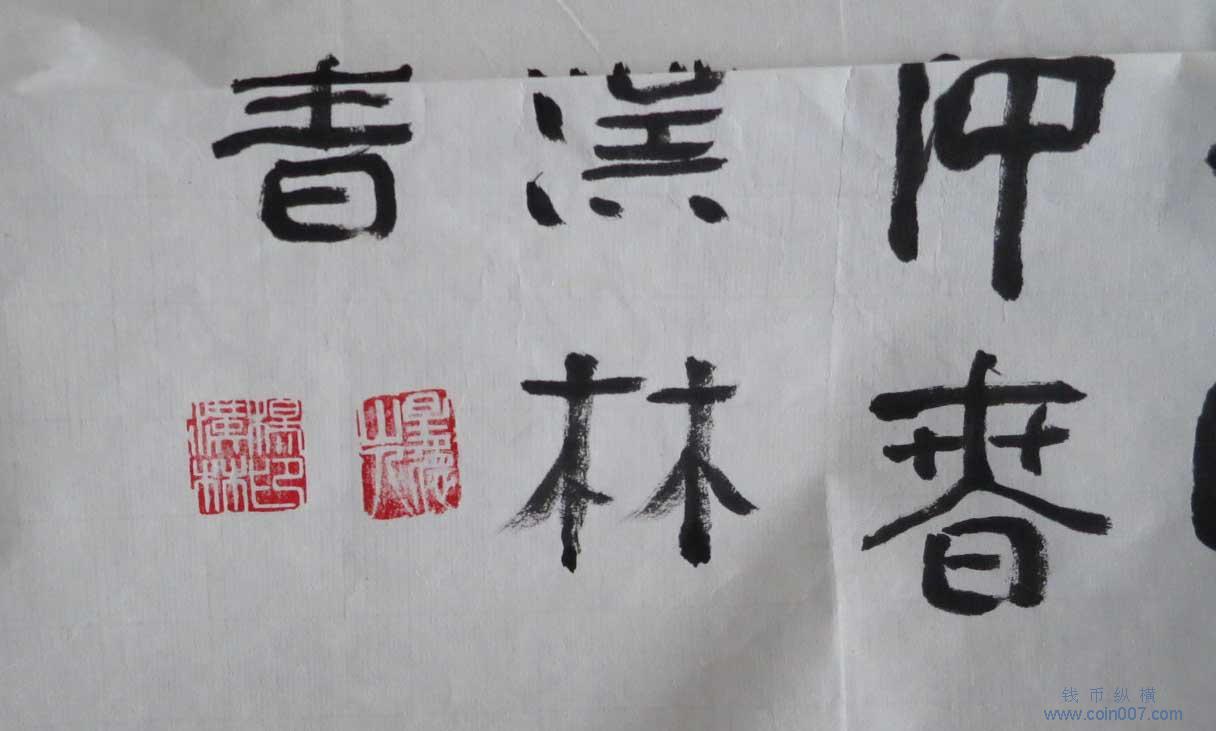 仲春
漢林
書
钱币纵横
www.coin007.com